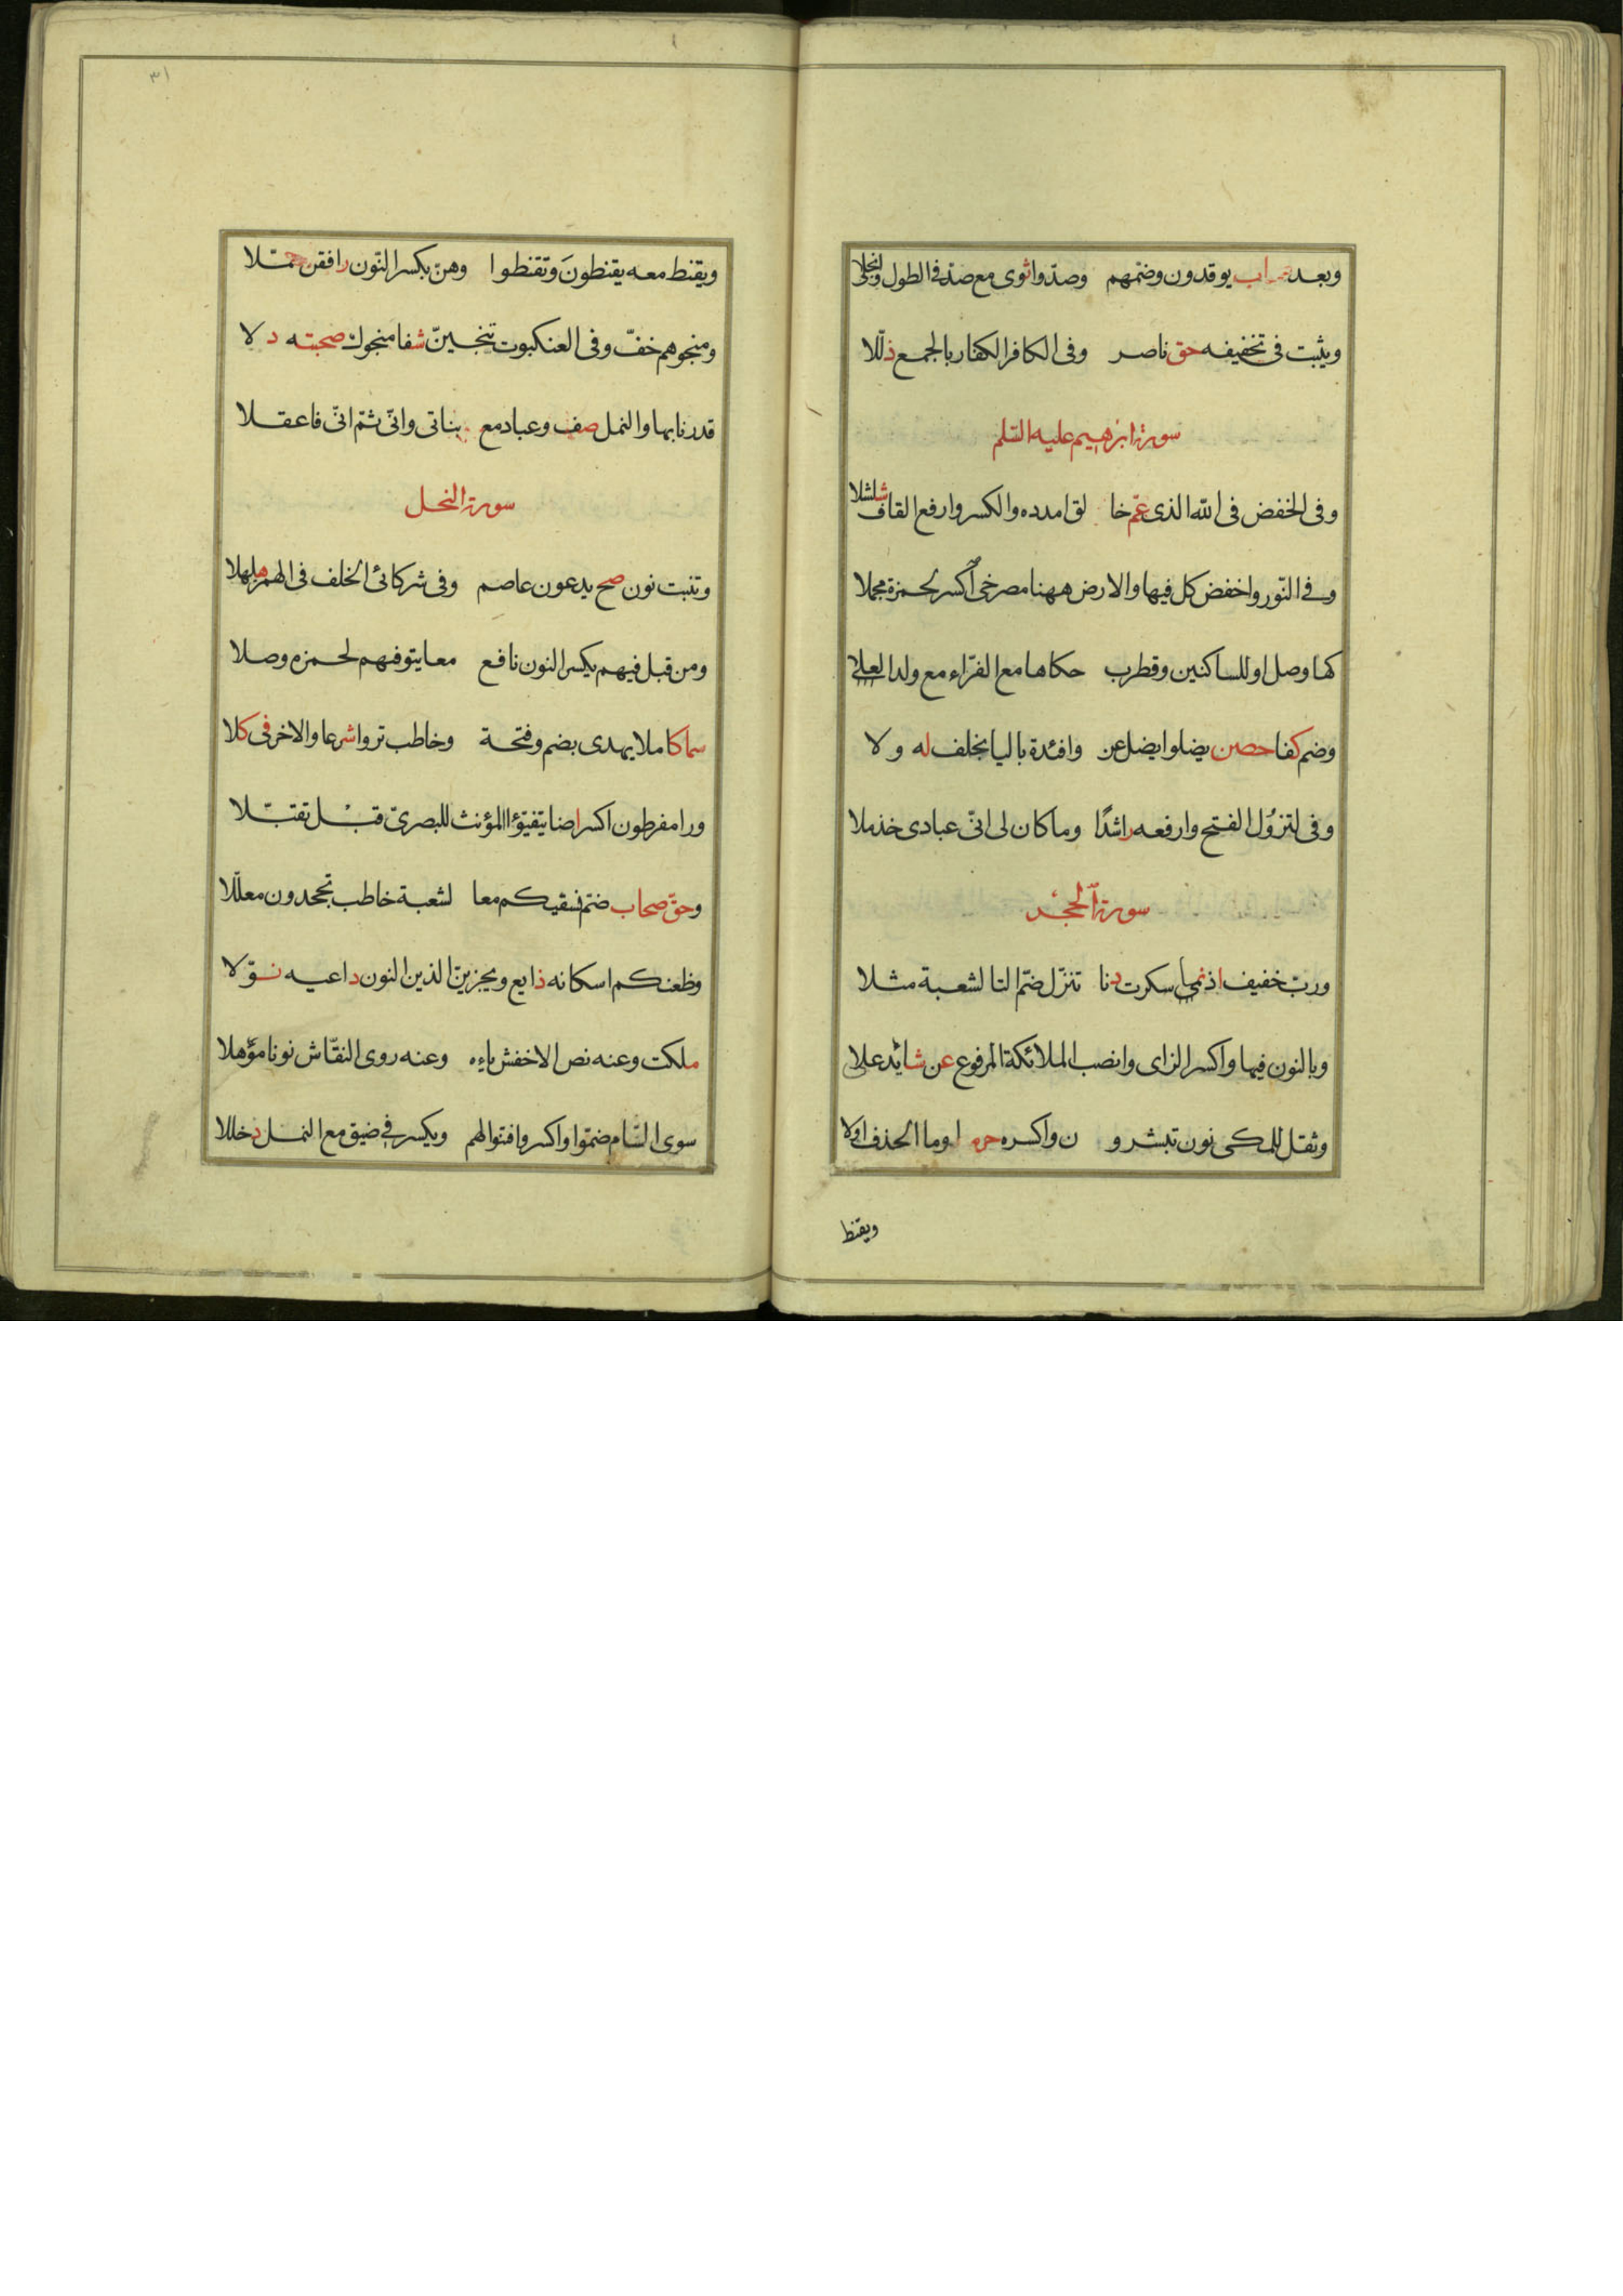 وبعد صحاب يوقدون وضمهم وصدوا ثوى مع صد فى الطول وانجلى
ويثبت فى تخفيفه حق ناصر وفى الكافر الكفار بالجمع ذللا
سورة ابرهيم عليه السلم
وفى الخفض فى الله الذى عم خا لق امدده والكسر وارفع القاف شلشلا
وفى النور واخفض كل فيها والارض ههنا مصرخى اكسر لحمزة مجملا
كها وصل او للساكنين وقطرب حكاها مع الفراء مع ولد العلا
وضم كفا حصن يضلوا يضل عن وافئدة باليا بخلف له ولا
وفى لتزول الفتح وارفعه راشدا وما كان لى انى عبادى خذ ملا
سورة الحجر
ورب خفيف اذ نمى سكرت دنا تنزل ضم التا لشعبة مثلا
وبالنون فيها واكسر الزاى وانصب الملائكة المرفوع عن شائد علا
وثقل للمكى نون تبشرو ن واكسره حرم اوما الحذف اولا
ويقنط
٣١
ويقنط معه يقنطون وتقنطوا وهن بكسر النون رافقن حملا
ومنجوهم خف وفى العنكبوت تنجين شفا منجوك صحبته دلا
قدرنا بها والنمل صف وعباد مع بناتى وانى ثم انى فاعقلا
سورة النحل
وتنبت نون صح يدعون عاصم وفى شركائى الخلف فى الهمز هلهلا
ومن قبل فيهم بكسر النون نافع معا يتوفهم لحمزه وصلا
سما كاملا يهدى بضم وفتحة وخاطب تروا شرعا والاخر فى كلا
ورا مفرطون اكسر اضا يتفيؤا المؤنث للبصرى قبل تقبلا
وحق صحاب ضم نسقيكم معا لشعبة خاطب تجحدون معللا
وظعنكم اسكانه ذايع ويجزين الذين النون داعيه نولا
ملكت وعنه نص الاخفش ياءه وعنه روى النقاش نونا مؤهلا
سوى الشام ضموا واكسروا فتنوا لهم ويكسر فى ضيق مع النمل دخللا